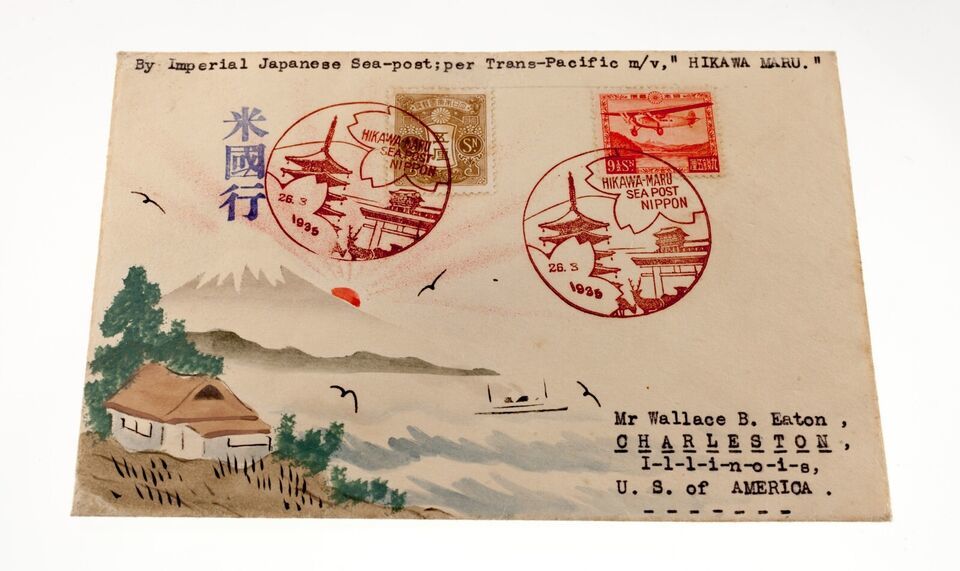 By Imperial Japanese Sea-post; per Trans-Pacific m/v," HIKAWA MARU."
米國行
HIKAWA-MARU
SEA POST
NIPPON
26. 3
1935
HIKAWA-MARU
SEA POST
NIPPON
26. 3
1935
Mr Wallace B. Eaton ,
CHARLESTON ,
I-l-l-i-n-o-i-s,
U. S. of AMERICA .